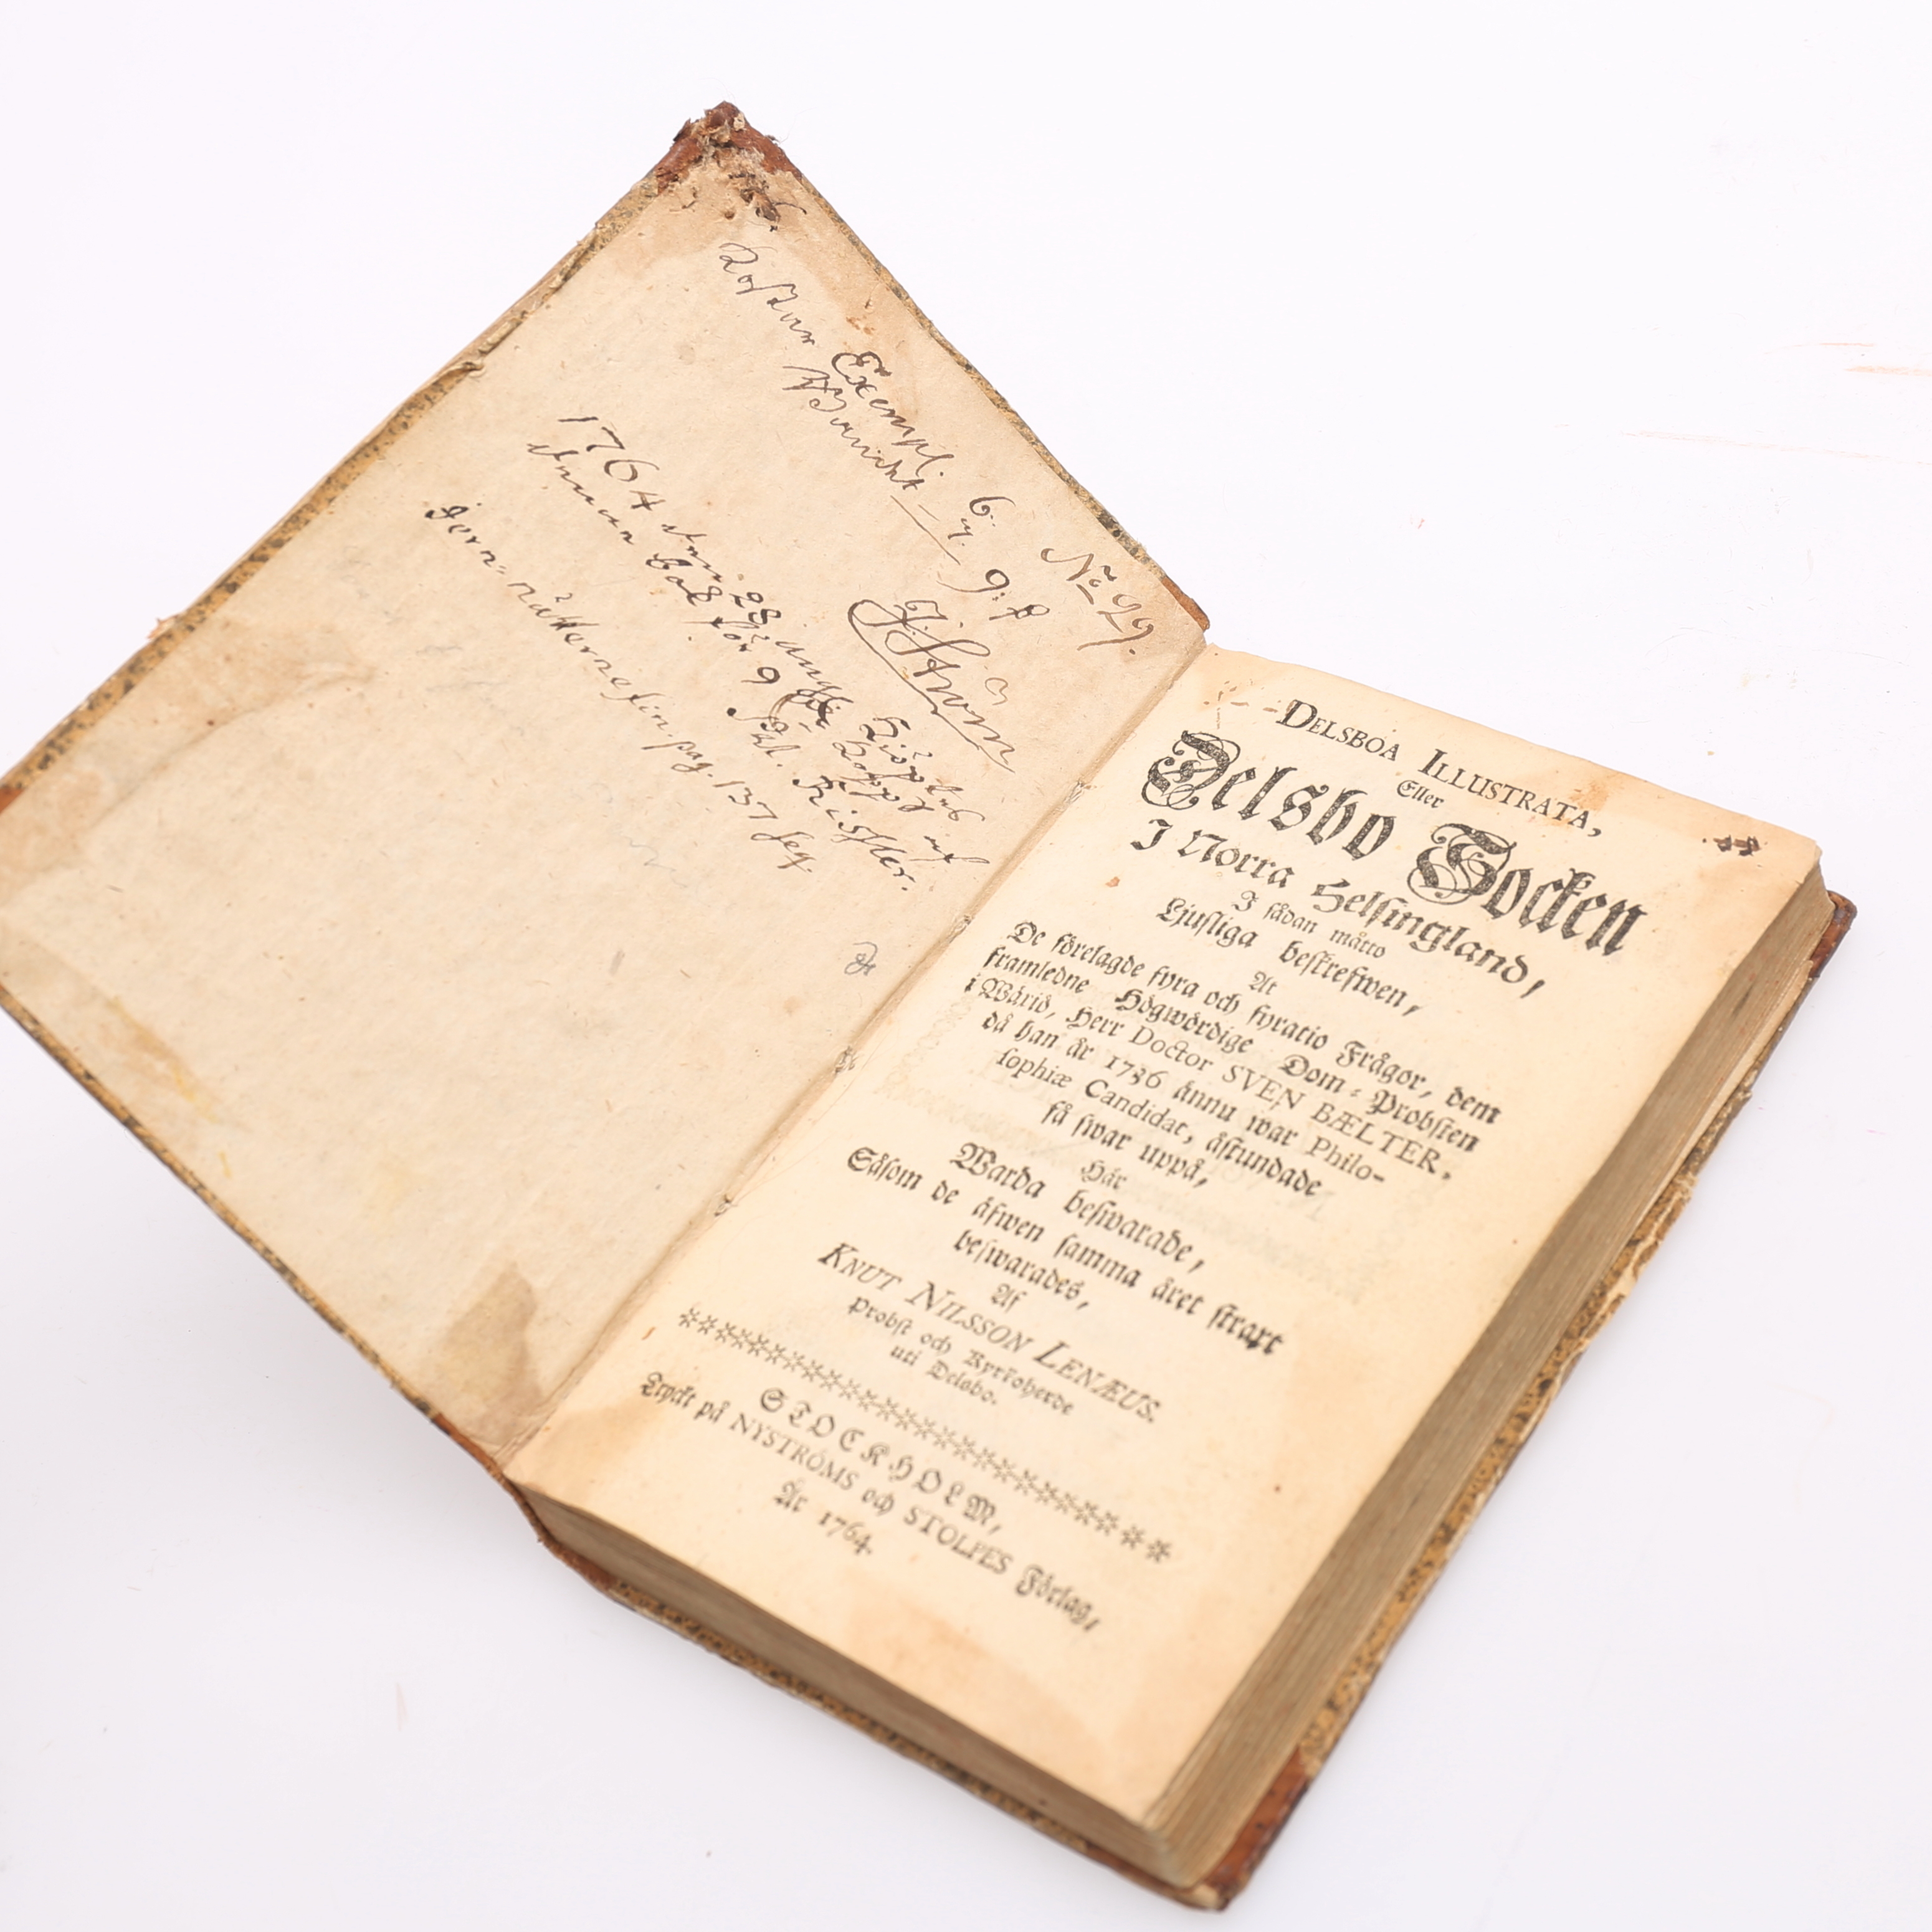 No 29.
Exempl. 6
9:
JStröm
1764 den 28 Kiöptes
bok för 9
jern-nätterne fin. pag. 137 seq.
DELSBOA ILLUSTRATA,
Eller
Delsbo Socken
I Norra Helsingland,
I sådan måtto
Ljusliga beskrefwen,
At
De förelagde fyra och fyratio Frågor, dem
framledne Högwördige Dom-Probsten
i Wäriö, Herr Doctor SVEN BÆLTER,
då han år 1736 ännu war Philo-
sophiæ Candidat, åstundade
få swar uppå,
Här
Warda beswarade,
Såsom de äfwen samma året strart
beswarades,
Af
KNUT NILSSON LENÆUS.
Probst och Kyrkoherde
uti Delsbo.
STOCKHOLM,
Tryckt på NYSTRÖMS och STOLPES Förlag,
År 1764.